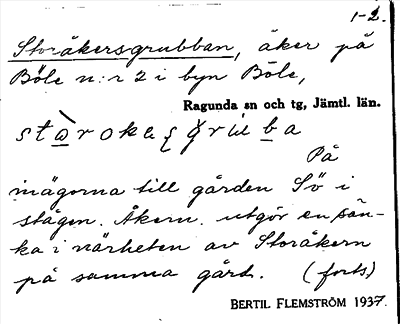 1-2.
Storåkersgrubban, åker på
Böle n:r 2 i byn Böle,
Ragunda sn och tg, Jämtl. län.
På
inägorna till gården Sö i
stägen. Åkern utgör en sän-
ka i närheten av Storåkern
på samma gård. (forts)
BERTIL FLEMSTRÖM 1937.